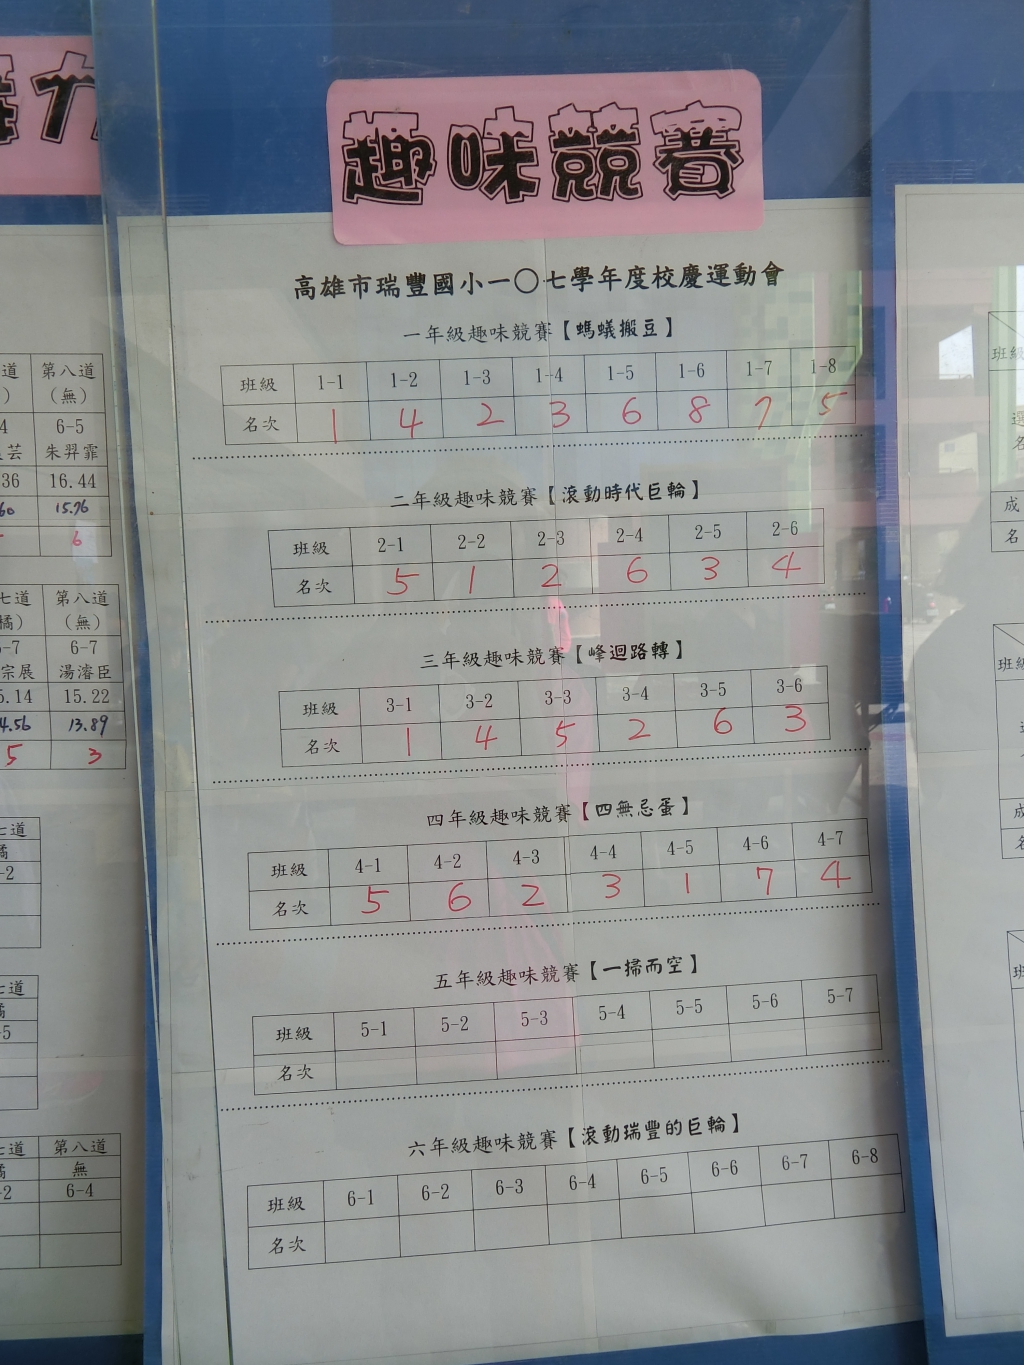 趣味競賽
高雄市瑞豐國小一〇七學年度校慶運動會
一年級趣味競賽【螞蟻搬豆】
班級 1-1 1-2 1-3 1-4 1-5 1-6 1-7 1-8
名次 1 4 2 3 6 8 7 5
二年級趣味競賽【滾動時代巨輪】
班級 2-1 2-2 2-3 2-4 2-5 2-6
名次 5 1 2 6 3 4
三年級趣味競賽【峰迴路轉】
班級 3-1 3-2 3-3 3-4 3-5 3-6
名次 1 4 5 2 6 3
四年級趣味競賽【四無忌蛋】
班級 4-1 4-2 4-3 4-4 4-5 4-6 4-7
名次 5 6 2 3 1 7 4
五年級趣味競賽【一掃而空】
班級 5-1 5-2 5-3 5-4 5-5 5-6 5-7
名次
六年級趣味競賽【滾動瑞豐的巨輪】
班級 6-1 6-2 6-3 6-4 6-5 6-6 6-7 6-8
名次
道 第八道
（無）
4 6-5
芸 朱羿霏
36 16.44
60 15.76
6
七道 第八道
橘） （無）
-7 6-7
宗展 湯濬臣
5.14 15.22
4.56 13.89
5 3
七道
橘
-2
七道
橘
-5
七道 第八道
橘 無
-2 6-4
班級
成
名
班級
成
名
班